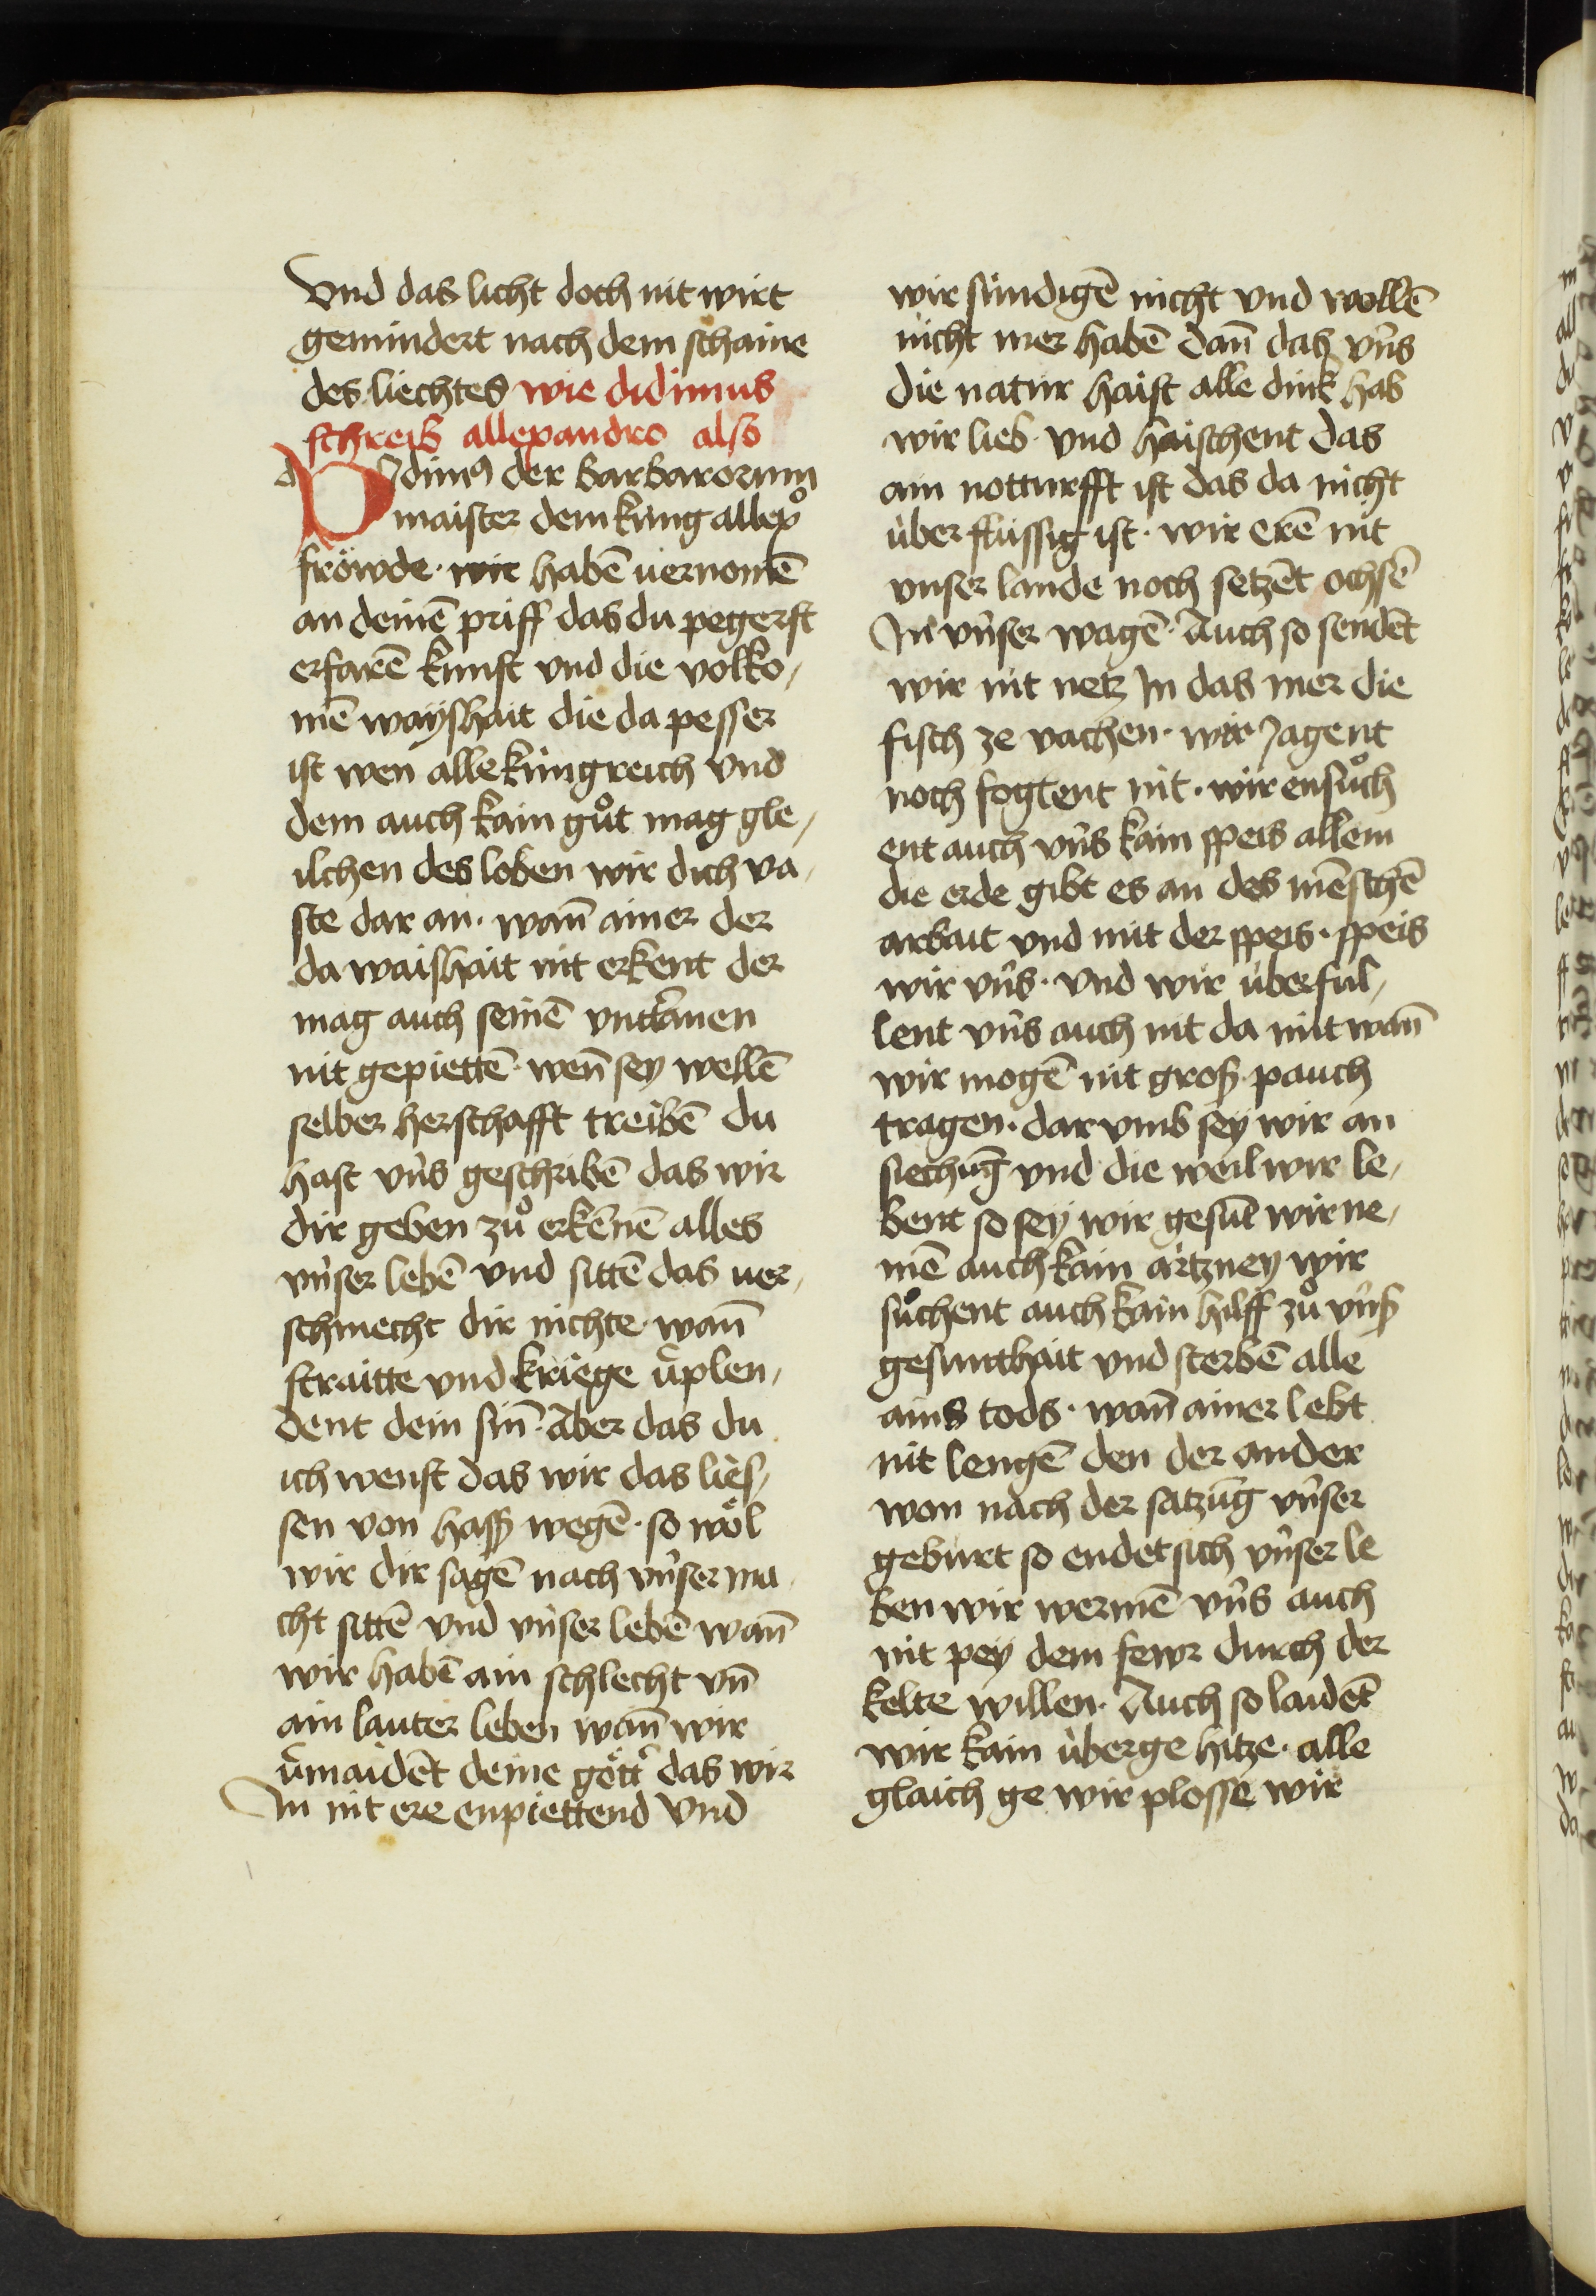 Vnd das licht doch nit wirt
gemindert nach dem schaine
des liechtes wie didimus
schreib allexandro also
Didimꝰ der barbarorum
maister dem kung allexͦ
fröwde · wir habē uernomē
an deinē priff das du pegerst
erfarē kunst vnd die volko/
mē wayshait die da pesser
ist wen alle kungreich vnd
dem auch kain gůt mag gle/
ichen des loben wir dich va/
ste dar an · wan̄ ainer der
da waishait nit erkent der
mag auch seinē vntt̄anen
nit gepiettē · wen̄ sey wellē
selber herschafft treibē du
hast vn̄s geschribē das wir
dir geben zů erkēnē alles
vnser lebē vnd sittē das uer/
schmecht dir nichte · wan̄
straitte vnd kriege v̄plen/
dent dein sin̄ · Aber das du
ich wenst das wir das lies/
sen von hass wegē · so wöl
wir dir sagē nach vn̄ser ma/
cht sittē vnd vnser lebē wan̄
wir habē ain schlecht vn̄
ain lauter leben wan̄ wir
v̄maidēt deine gött̄ das wir
In nit ere enpiettend Vnd
wir sündigē nicht vnd wollē
nicht mer habē dan̄ das vn̄s
die natur haist alle dink hab
wir lieb · vnd haischent das
ain notturfft ist das da nicht
über flüssig ist · wir erē nit
vnser lande noch setzēt ochsē
In vn̄ser wagē · Auch so sendēt
wir nit netz In das mer die
fisch ze vachen · wir Jagent
noch fogtent nit · wir ensůch
ent auch vn̄s kain speis allein
die erde gibt es an des mēschē
arbait vnd mit der speis · speis
wir vn̄s · Vnd wir überful/
lent vn̄s auch nit da mit wan̄
wir mogē nit groß pauch
tragen · dar vmb sey wir an
siechūg vnd die weil wir le/
bent so sey wir gesūt wir ne/
mē auch kain ärtzney wir
sůchent auch kain hilff zů vn̄ß
gesunthait vnd sterbē alle
ains tods · wan̄ ainer lebt
nit lengē den der ander
won nach der satzūg vn̄ser
geburt so endet sich vn̄ser le
ben wir wermē vn̄s auch
nit pey dem fewr durch der
kelte willen · Auch so laidēt
wir kain überge hitze · alle
glaich ge wir plosse wir